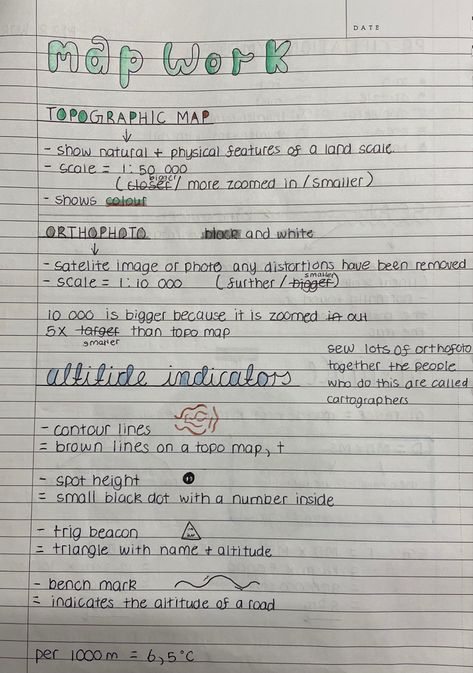 DATE
map work
TOPOGRAPHIC MAP
- show natural + physical features of a land scale.
- scale = 1:50 000
bigger
( closer / more zoomed in / smaller)
- shows colour
ORTHOPHOTO black and white
- satelite image or photo any distortions have been removed
smaller
- scale = 1:10 000 ( further / bigger)
10 000 is bigger because it is zoomed in out
5x larger than topo map
smaller
sew lots of orthofoto
together the people
who do this are called
cartographers
altitide indicators
- contour lines
= brown lines on a topo map, t
- spot height
= small black dot with a number inside
- trig beacon
= triangle with name + altitude
- bench mark
= indicates the altitude of a road
per 1000m = 6,5°C